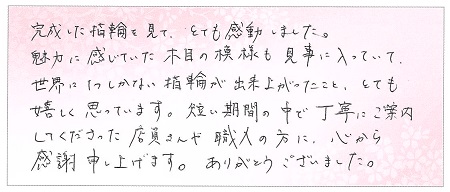 完成した指輪を見て、とても感動しました。
魅力に感じていた木目の模様も見事に入っていて、
世界に1つしかない指輪が出来上がったこと、とても
嬉しく思っています。短い期間の中で丁寧にご案内
してくださった店員さんや職人の方に、心から
感謝申し上げます。ありがとうございました。